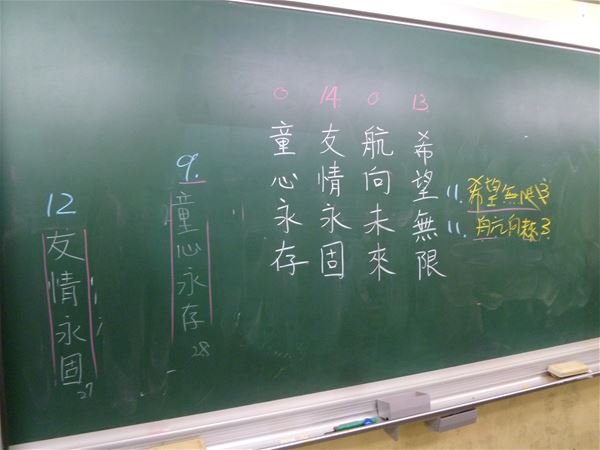 13
希望無限
0
航向未來
14
友情永固
0
童心永存
11. 希望無限
11. 航向
9.
童心永存
28
12
友情永固
27